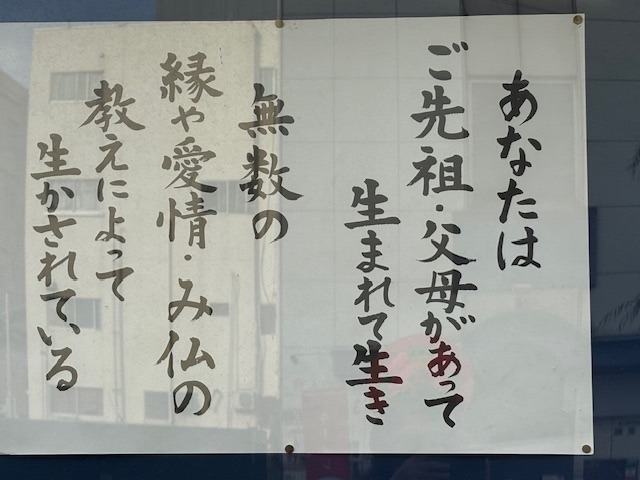 あなたは
ご先祖・父母があって
生まれて生き
無数の
縁や愛情・み仏の
教えによって
生かされている